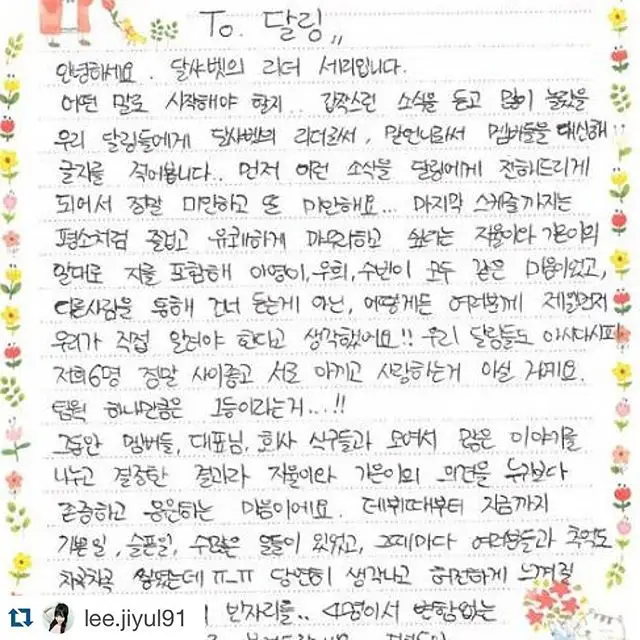 To. 달링,,
안녕하세요. 달샤벳의 리더 세리입니다.
어떤 말로 시작해야 할지.. 갑작스런 소식을 듣고 많이 놀랐을
우리 달링들에게 달샤벳의 리더로써, 맏언니로써 멤버들을 대신해
글자를 적어봅니다.. 먼저 이런 소식을 달링에게 전해드리게
되어서 정말 미안하고 또 미안해요... 마지막 스케줄까지는
평소처럼 즐겁고 유쾌하게 마무리하고 싶다는 지율이와 가은이의
말대로 저를 포함해 아영이, 우희, 수빈이 모두 같은 마음이었고,
다른사람을 통해 건너 듣는게 아닌, 어떻게든 여러분께 제일먼저
우리가 직접 알려야 한다고 생각했어요!! 우리 달링들도 아시다시피
저희6명 정말 사이좋고 서로 아끼고 사랑하는거 아실 거예요.
팀웍 하나만큼은 1등이라는거...!!
그동안 멤버들, 대표님, 회사 식구들과 모여서 많은 이야기를
나누고 결정한 결과라 지율이와 가은이의 의견을 누구보다
존중하고 응원하는 마음이에요. 데뷔때부터 지금까지
기쁜일, 슬픈일, 수많은 일들이 있었고, 그때마다 여러분들과 추억도
차곡차곡 쌓였는데 ㅠ_ㅠ 당연히 생각나고 허전하게 느껴질
lee.jiyul91 빈자리를.. 4명이서 변함없는